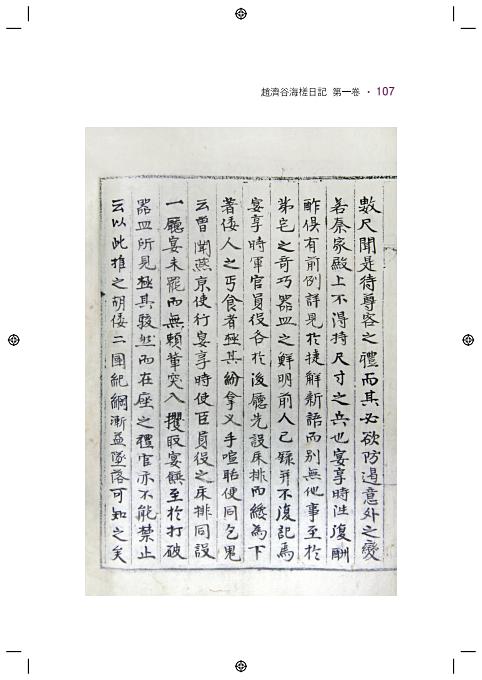 趙濟谷海槎日記 第一卷 · 107
數尺聞是待尊客之禮而其必欲防遏意外之變
若秦家殿上不得持尺寸之兵也宴享時往復酬
酢俱有前例詳見於捷解新語而別無他事至於
第宅之奇巧器皿之鮮明前人已錄幷不復記焉
宴享時軍官員役各於後廳先設床排而緩為下
著倭人之丐食者極其紛拿叉手喧聒便同乞鬼
云曾聞燕京使行宴享時使臣員役之床排同設
一廳宴未罷而無賴輩突入攫取宴饌至於打破
器皿所見極其駭然而在座之禮官亦不能禁止
云以此推之胡倭二國紀綱漸益墜落可知之矣